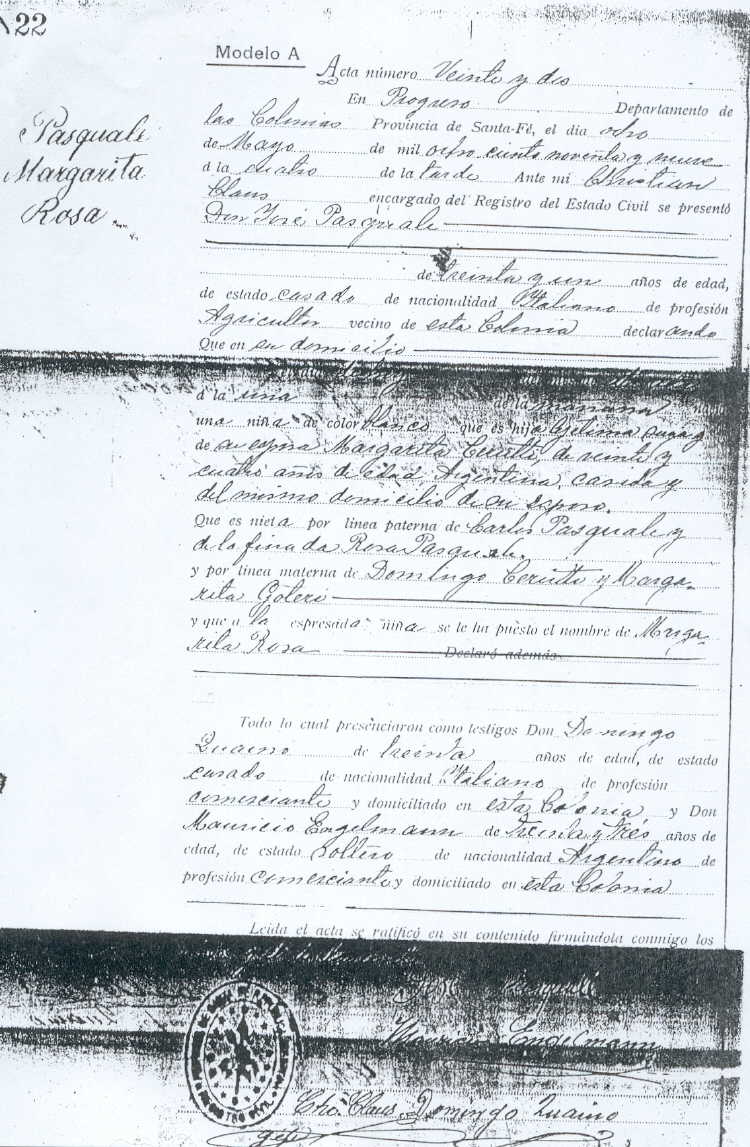 22
Modelo A
Acta número Veinte y dos
En Progreso Departamento de
las Colonias Provincia de Santa-Fé, el dia ocho
Pasquale
Margarita
Rosa
de Mayo de mil ocho ciento noventa y nueve
á la cuatro de la tarde Ante mi Christian
Claus encargado del Registro del Estado Civil se presentó
Don José Pasquale
de treinta y un años de edad,
de estado casado de nacionalidad Italiano de profesión
Agricultor vecino de esta Colonia declarando
Que en su domicilio
á la una de la mañana
una niña de color blanco que es hija legitima suya y
de su esposa Margarita Cerutti, de veinte y
cuatro años de edad, Argentina, casada y
del mismo domicilio de su esposo.
Que es nieta por linea paterna de Carlos Pasquale y
de la finada Rosa Pasquale.
y por linea materna de Domingo Cerutti y Marga-
rita Goteri
y que a la espresada niña se le ha puesto el nombre de Marga-
rita Rosa Declaró además
Todo lo cual presenciaron como testigos Don Domingo
Quaino de treinta años de edad, de estado
casado de nacionalidad Italiano de profesión
comerciante y domiciliado en esta Colonia y Don
Mauricio Engelmann de treinta y trés años de
edad, de estado soltero de nacionalidad Argentino de
profesión comerciante y domiciliado en esta Colonia
Leida el acta se ratificó en su contenido firmándola conmigo los
José Pasquale
Mauricio Engelmann
Cho. Claus Domingo Quaino